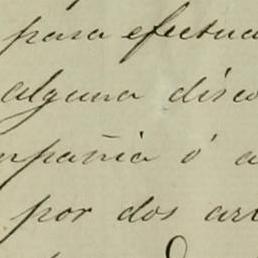 para efectua
alguna disco
mpañia ó a
por dos arr